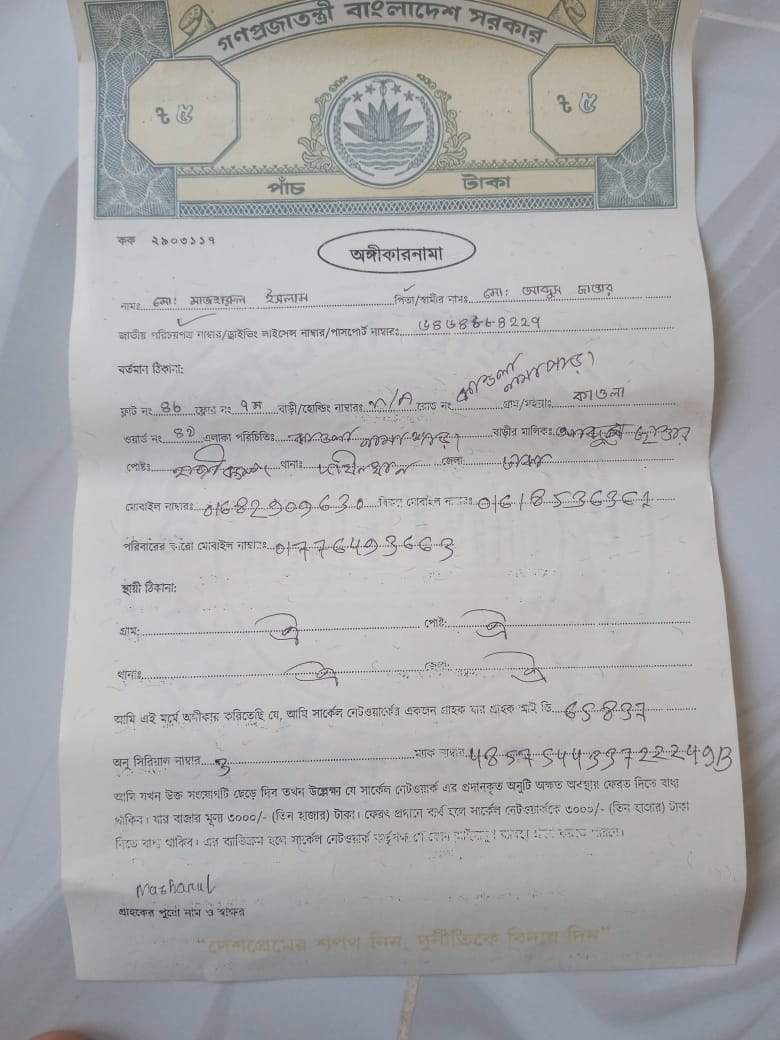 গণপ্রজাতন্ত্রী বাংলাদেশ সরকার
৳ ৫ ৳ ৫
পাঁচ টাকা
কক ২৯০৩১১৭
অঙ্গীকারনামা
নামঃ মো: মাজহারুল ইসলাম পিতা/স্বামীর নামঃ মো: আব্দুস জাত্তার
জাতীয় পরিচয়পত্র নাম্বার/ড্রাইভিং লাইসেন্স নাম্বার/পাসপোর্ট নাম্বারঃ
বর্তমান ঠিকানা:
কাওলা নামাপাড়া
ফ্লাট নং 4b ফ্লোর নং ৭ম বাড়ী/হোল্ডিং নাম্বারঃ N/A রোড নং গ্রাম/মহল্লাঃ কাওলা
ওয়ার্ড নং এলাকা পরিচিতিঃ কাওলা নামা পাড়া বাড়ীর মালিকঃ
পোষ্টঃ থানাঃ জেলাঃ ঢাকা
মোবাইল নাম্বারঃ 01682909630 বিকল্প মোবাইল নাম্বারঃ
পরিবারের কারো মোবাইল নাম্বারঃ 01776493663
স্থায়ী ঠিকানা:
গ্রাম: ঐ পোষ্ট: ঐ
থানাঃ ঐ জেলা: ঐ
আমি এই মর্মে অঙ্গীকার করিতেছি যে, আমি সার্কেল নেটওয়ার্কের একজন গ্রাহক যার গ্রাহক আই ডি 65837
অনু সিরিয়াল নাম্বার ম্যাক নাম্বার 485754433722249B
আমি যখন উক্ত সংযোগটি ছেড়ে দিব তখন উল্লেখ্য যে সার্কেল নেটওয়ার্ক এর প্রদানকৃত অনুটি অক্ষত অবস্থায় ফেরত দিতে বাধ্য
থাকিব। যার বাজার মূল্য ৩০০০/- (তিন হাজার) টাকা। ফেরৎ প্রদানে ব্যর্থ হলে সার্কেল নেটওয়ার্ককে ৩০০০/- (তিন হাজার) টাকা
দিতে বাধ্য থাকিব। এর ব্যতিক্রম হলে সার্কেল নেটওয়ার্ক কর্তৃপক্ষ যে কোন
Mazharul
গ্রাহকের পুরো নাম ও স্বাক্ষর
"দেশপ্রেমের শপথ নিন, দুর্নীতিকে বিদায় দিন"